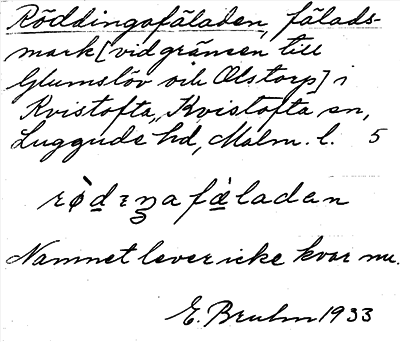 Röddingafäladen, fälads-
mark [vid gränsen till
Glumslöv och Ålstorp] i
Kvistofta, Kvistofta sn,
Luggude hd, Malm. l. 5
rødɪŋafæladan
Namnet lever icke kvar nu.
E. Bruhn 1933